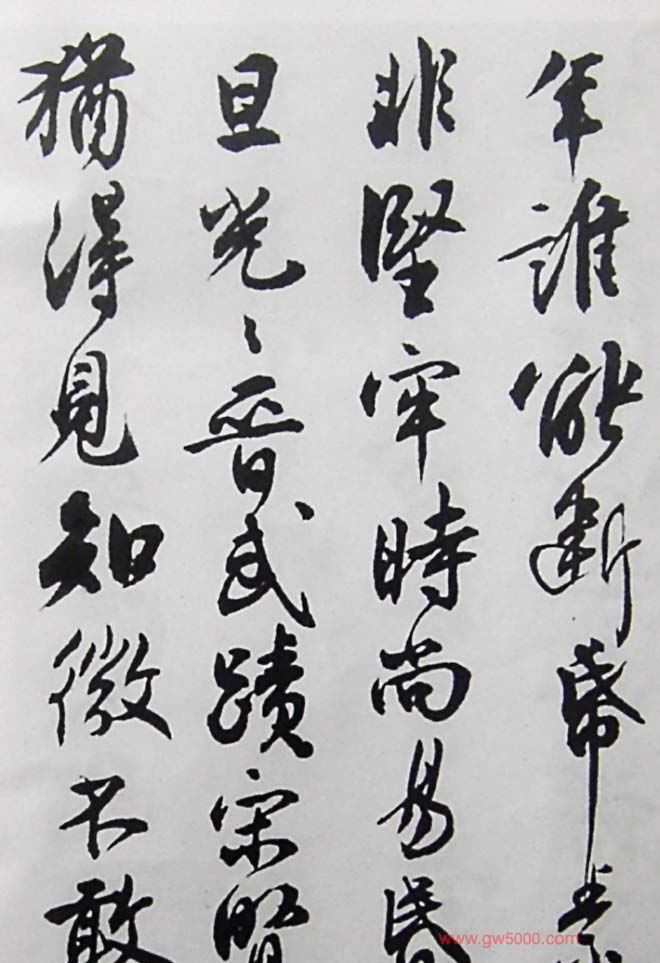 年誰能斷帋
非堅牢時尚易昏
旦光〻晉武蹟宋賢
猶得見知微不敢
www.gw5000.com